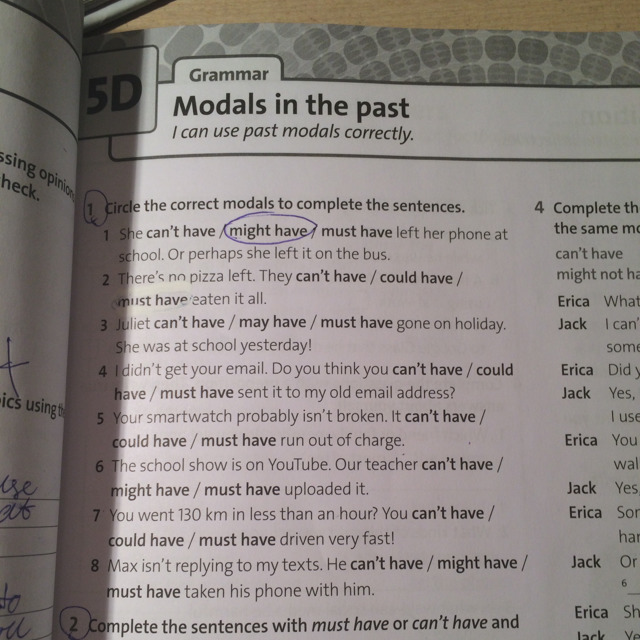 5D
Grammar
Modals in the past
I can use past modals correctly.
ssing opinion
heck.
ics using th
use
to
1 Circle the correct modals to complete the sentences.
1 She can't have / might have / must have left her phone at
school. Or perhaps she left it on the bus.
2 There's no pizza left. They can't have / could have /
must have eaten it all.
3 Juliet can't have / may have / must have gone on holiday.
She was at school yesterday!
4 I didn't get your email. Do you think you can't have / could
have / must have sent it to my old email address?
5 Your smartwatch probably isn't broken. It can't have /
could have / must have run out of charge.
6 The school show is on YouTube. Our teacher can't have /
might have / must have uploaded it.
7 You went 130 km in less than an hour? You can't have /
could have / must have driven very fast!
8 Max isn't replying to my texts. He can't have / might have /
must have taken his phone with him.
2 Complete the sentences with must have or can't have and
4 Complete th
the same mo
can't have
might not ha
Erica What
Jack I can'
some
Erica Did y
Jack Yes,
I use
Erica You
wal
Jack Yes,
Erica Sor
har
Jack Or
6
Erica Sh
Jack Ye